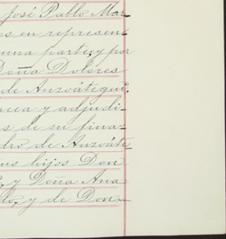 José Pablo Mar-
os en represen-
una parte, y por
Doña Dolores
de Anzoátegui.
ncea y adjudi-
s de su fina-
dro de Anzoáte
us hijos Don
y Doña Ana
do, y de Don